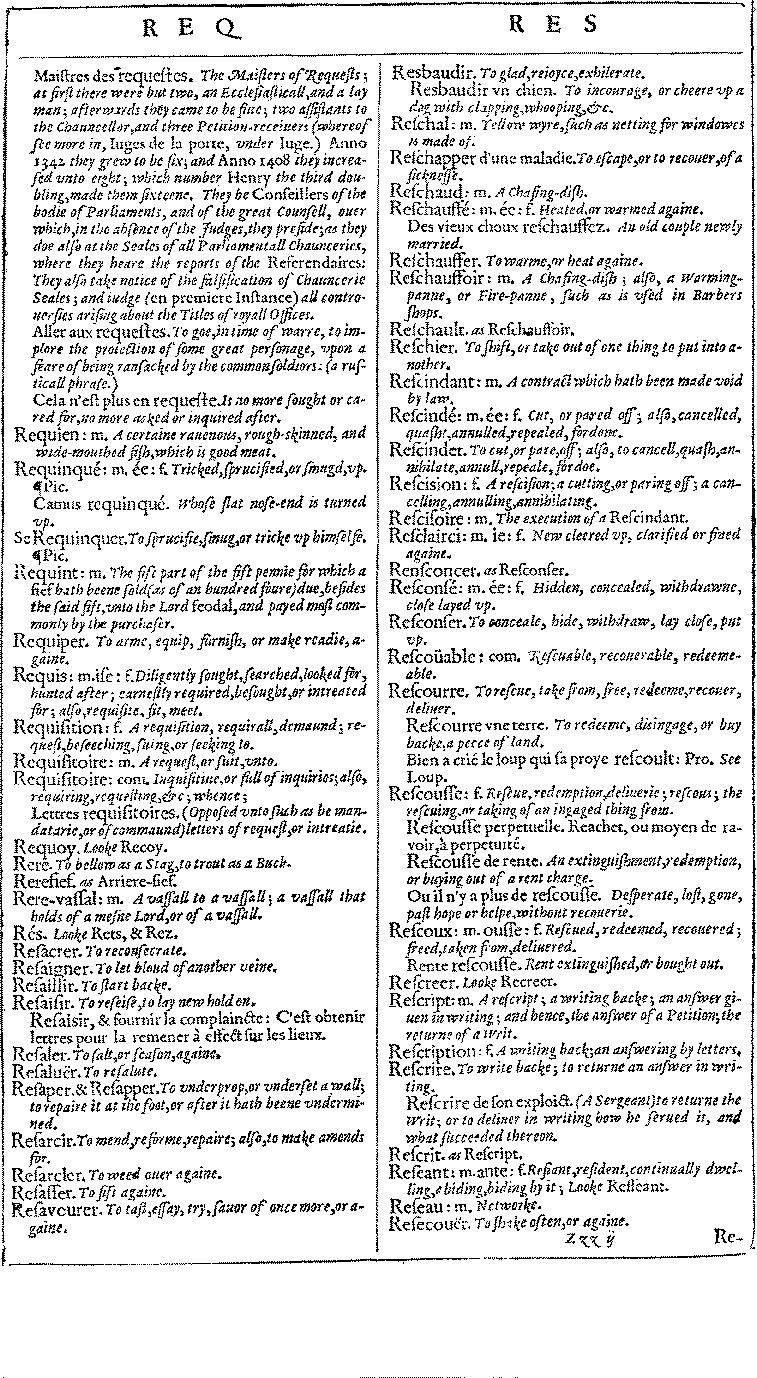 REQ
RES
Maistres des requestes. The Maisters of Requests;
at first there were but two, an Ecclesiasticall, and a lay
man; afterwards they came to be fiue; two assistants to
the Chauncellor, and three Petition-receiuers (whereof
see more in, Iuges de la porte, vnder Iuge.) Anno
1342 they grew to be six; and Anno 1408 they increa-
sed vnto eight; which number Henry the third dou-
bling, made them sixteene. They be Conseillers of the
bodie of Parliaments, and of the great Counsell, ouer
which, in the absence of the Judges, they preside; as they
doe also at the Seales of all Parliamentall Chaunceries,
where they heare the reports of the Referendaires:
They also take notice of the falsification of Chauncerie
Seales; and iudge (en premiere Instance) all contro-
uersies arising about the Titles of royall Offices.
Aller aux requestes. To goe, in time of warre, to im-
plore the protection of some great personage, vpon a
feare of being ransacked by the common soldiors: (a rus-
ticall phrase.)
Cela n'est plus en requeste. Is no more sought or ca-
red for, no more asked or inquired after.
Requien: m. A certaine rauenous, rough-skinned, and
wide-mouthed fish, which is good meat.
Requinqué: m. ée: f. Tricked, sprucified, or smugd, vp.
¶Pic.
Camus requinqué. Whose flat nose-end is turned
vp.
Se Requinquer. To sprucifie, smug, or tricke vp himselfe.
¶Pic.
Requint: m. The fift part of the fift pennie for which a
fief hath beene sold (as of an hundred foure) due, besides
the said fift, vnto the Lord feodal, and payed most com-
monly by the purchaser.
Requiper. To arme, equip, furnish, or make readie, a-
gaine.
Requis: m. ise: f. Diligently sought, searched, looked for,
hunted after; earnestly required, besought, or intreated
for; also, requisite, fit, meet.
Requisition: f. A requisition, requirall, demaund; re-
quest, beseeching, suing, or seeking to.
Requisitoire: m. A request, or suit, vnto.
Requisitoire: com. Inquisitiue, or full of inquiries; also,
requiring, requesting, &c; whence;
Lettres requisitoires. (Opposed vnto such as be man-
datarie, or of commaund) letters of request, or intreatie.
Requoy. Looke Recoy.
Rere. To bellow as a Stag, to trout as a Buck.
Rerefief. as Arriere-fief.
Rere-vassal: m. A vassall to a vassall; a vassall that
holds of a mesne Lord, or of a vassall.
Rés. Looke Rets, & Rez.
Resacrer. To reconsecrate.
Resaigner. To let bloud of another veine.
Resaillir. To start backe.
Resaisir. To reseise, to lay new hold on.
Resaisir, & fournir la complaincte: C'est obtenir
lettres pour la remener à effect sur les lieux.
Resaler. To salt, or season, againe.
Resaluër. To resalute.
Resaper. & Resapper. To vnderprop, or vnderset a wall;
to repaire it at the foot, or after it hath beene vndermi-
ned.
Resarcir. To mend, reforme, repaire; also, to make amends
for.
Resarcler. To weed ouer againe.
Resasser. To sift againe.
Resaveurer. To tast, essay, try, sauor of once more, or a-
gaine.
Resbaudir. To glad, reioyce, exhilerate.
Resbaudir vn chien. To incourage, or cheere vp a
dog with clapping, whooping, &c.
Reschal: m. Yellow wyre, such as netting for windowes
is made of.
Reschapper d'une maladie. To escape, or to recouer, of a
sicknesse.
Reschaud: m. A Chafing-dish.
Reschauffé: m. ée: f. Heated, or warmed againe.
Des vieux choux reschauffez. An old couple newly
married.
Reschauffer. To warme, or heat againe.
Reschauffoir: m. A Chafing-dish; also, a Warming-
panne, or Fire-panne, such as is vsed in Barbers
shops.
Reschault. as Reschauffoir.
Reschier. To shift, or take out of one thing to put into a-
nother.
Rescindant: m. A contract which hath been made void
by law.
Rescindé: m. ée: f. Cut, or pared off; also, cancelled,
quasht, annulled, repealed, fordone.
Rescinder. To cut, or pare, off; also, to cancell, quash, an-
nihilate, annull, repeale, fordoe.
Rescision: f. A rescision; a cutting, or paring off; a can-
celling, annulling, annihilating.
Rescisoire: m. The execution of a Rescindant.
Resclairci: m. ie: f. New cleered vp, clarified or fined
againe.
Rensconcer. as Resconser.
Resconsé: m. ée: f. Hidden, concealed, withdrawne,
close layed vp.
Resconser. To conceale, hide, withdraw, lay close, put
vp.
Rescoüable: com. Rescuable, recouerable, redeeme-
able.
Rescourre. To rescue, take from, free, redeeme, recouer,
deliuer.
Rescourre vne terre. To redeeme, disingage, or buy
backe, a peece of land.
Bien a crié le loup qui sa proye rescoult: Pro. See
Loup.
Rescousse: f. Rescue, redemption, deliuerie; rescous; the
rescuing, or taking of an ingaged thing from.
Rescousse perpetuelle. Reachet, ou moyen de ra-
voir, à perpetuité.
Rescousse de rente. An extinguishment, redemption,
or buying out of a rent charge.
Ou il n'y a plus de rescousse. Desperate, lost, gone,
past hope or helpe, without recouerie.
Rescoux: m. ousse: f. Rescued, redeemed, recouered;
freed, taken from, deliuered.
Rente rescousse. Rent extinguished, or bought out.
Rescreer. Looke Recreer.
Rescript: m. A rescript; a writing backe; an answer gi-
uen in writing; and hence, the answer of a Petition; the
returne of a Writ.
Rescription: f. A writing back; an answering by letters.
Rescrire. To write backe; to returne an answer in wri-
ting.
Rescrire de son exploict. (A Sergeant) to returne the
Writ; or to deliuer in writing how he serued it, and
what succeeded thereon.
Rescrit. as Rescript.
Reseant: m. ante: f. Resiant, resident, continually dwel-
ling, abiding, biding by it; Looke Resseant.
Reseau: m. Networke.
Resecouër. To shake often, or againe.
Zzz ij
Re-